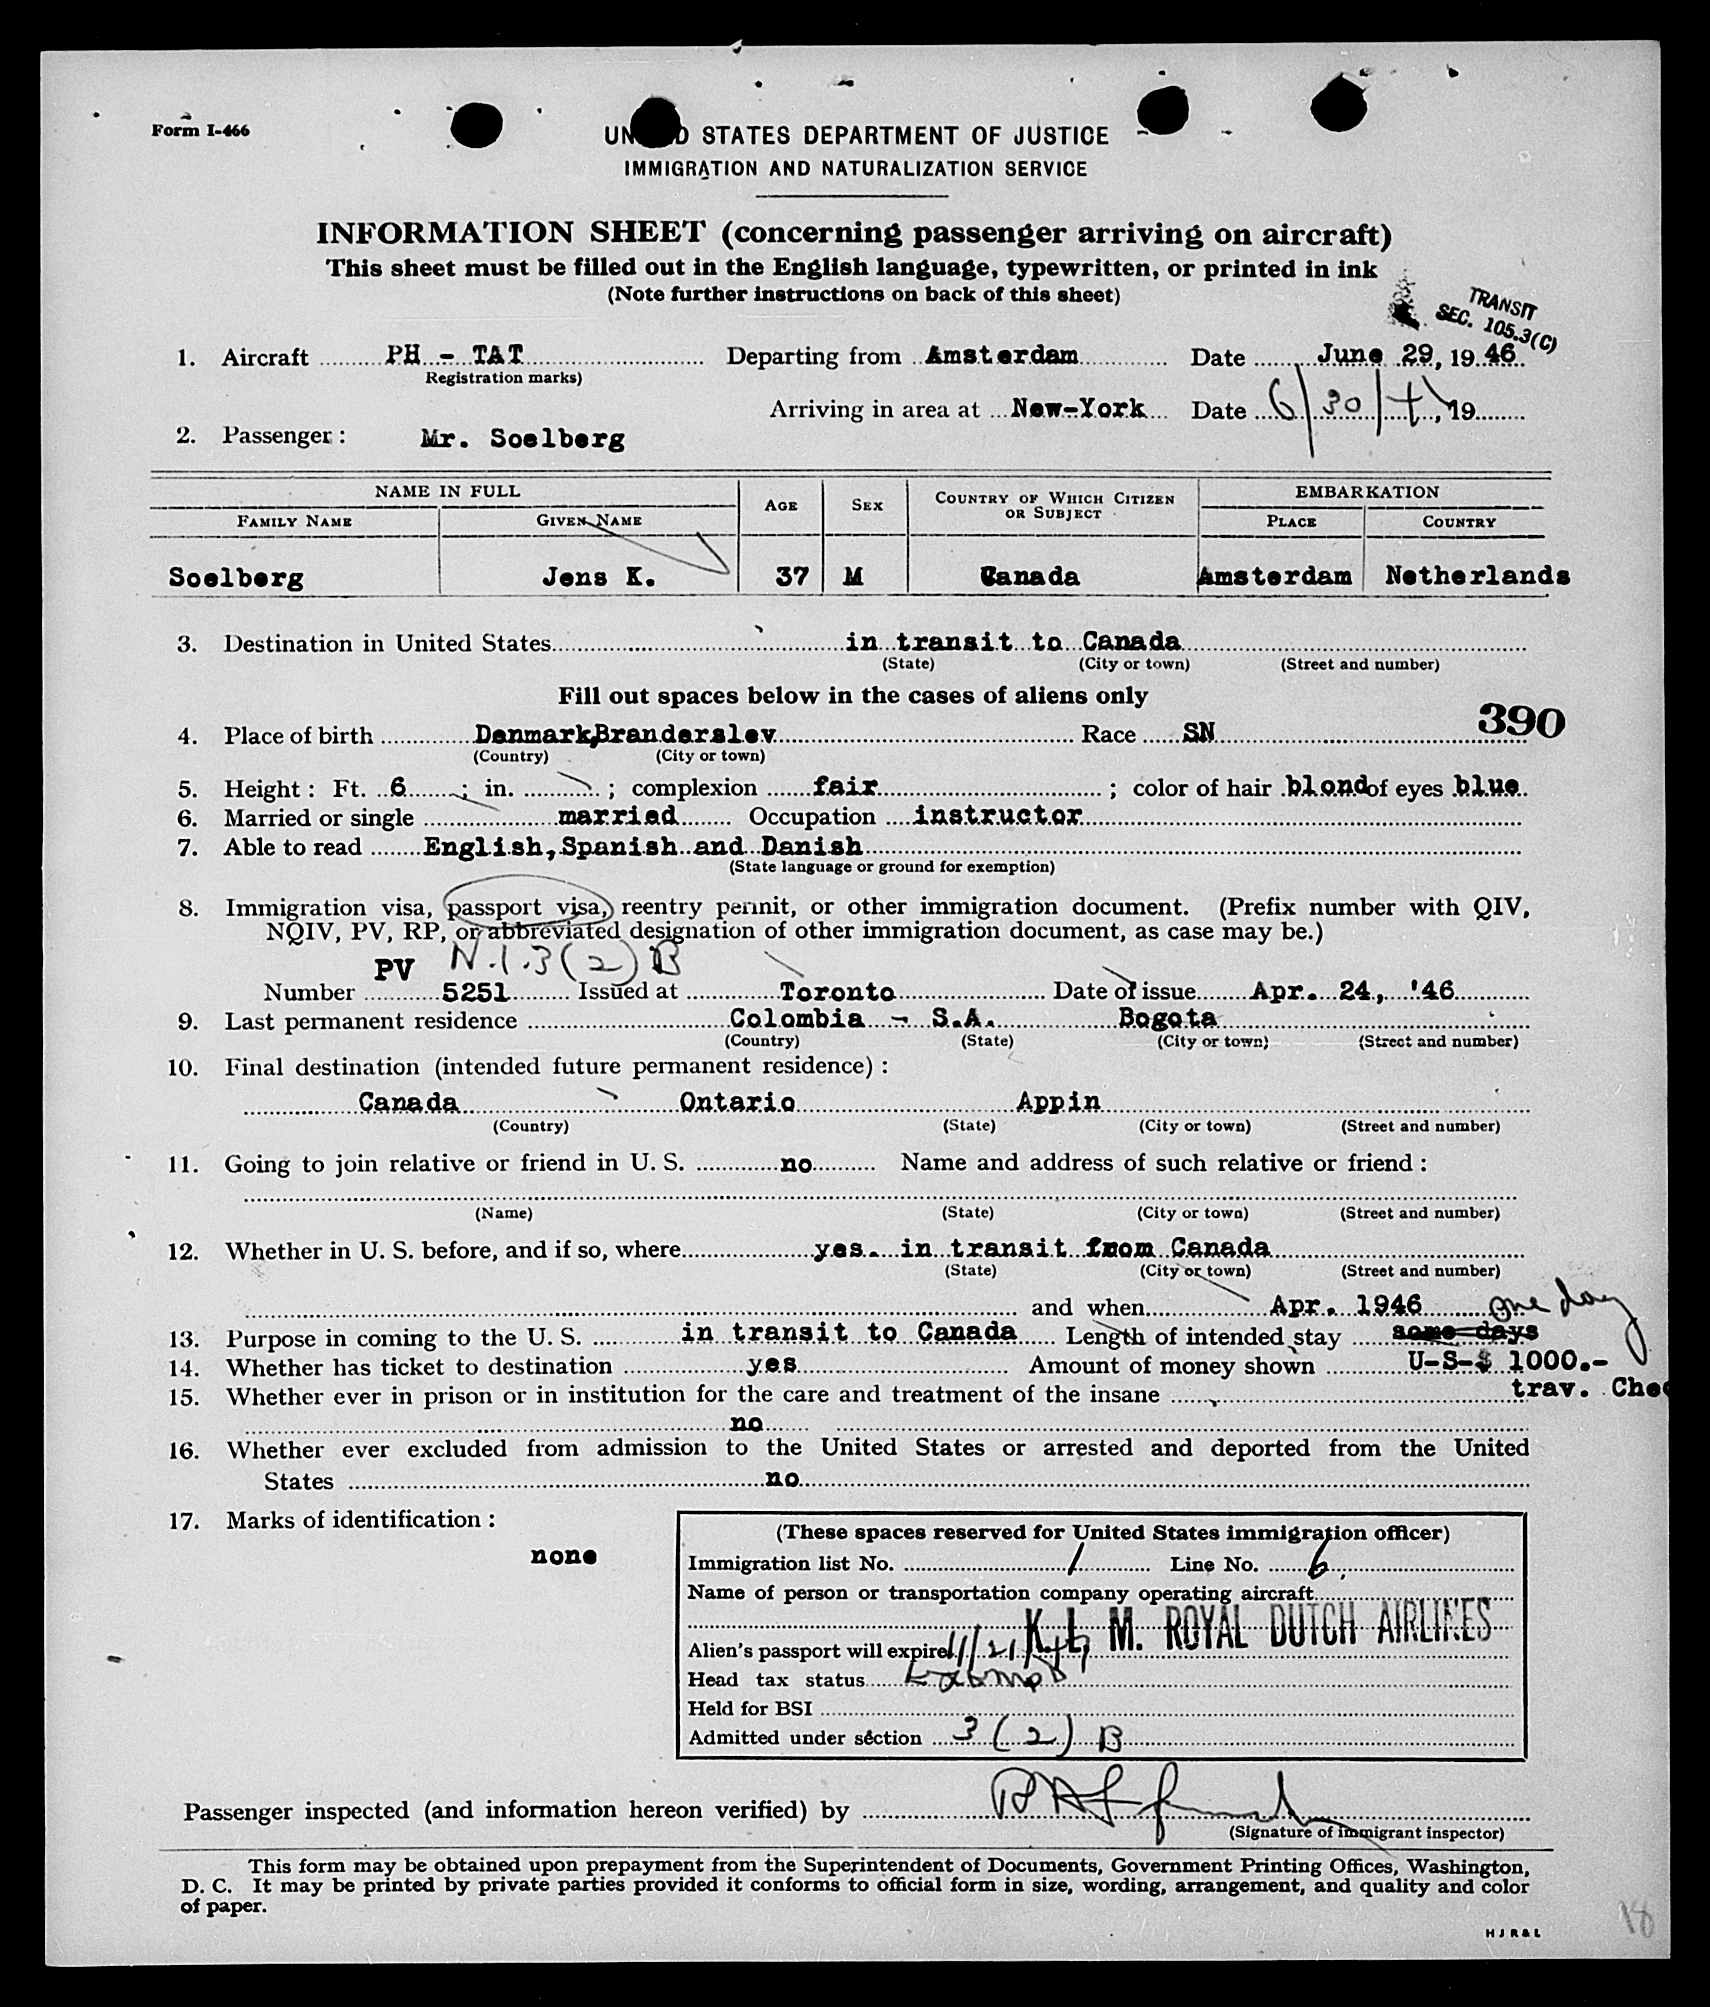 Form I-466
UN D STATES DEPARTMENT OF JUSTICE
IMMIGRATION AND NATURALIZATION SERVICE
INFORMATION SHEET (concerning passenger arriving on aircraft)
This sheet must be filled out in the English language, typewritten, or printed in ink
(Note further instructions on back of this sheet)
TRANSIT
SEC. 105.3(C)
1. Aircraft PH - TAT Departing from Amsterdam Date June 29, 1946
Registration marks)
Arriving in area at New-York Date 6/30/ , 19
2. Passenger: Mr. Soelberg
NAME IN FULL AGE SEX COUNTRY OF WHICH CITIZEN OR SUBJECT EMBARKATION
FAMILY NAME GIVEN NAME PLACE COUNTRY
Soelberg Jens K. 37 M Canada Amsterdam Netherlands
3. Destination in United States in transit to Canada
(State) (City or town) (Street and number)
Fill out spaces below in the cases of aliens only
390
4. Place of birth Denmark,Branderslev Race SN
(Country) (City or town)
5. Height: Ft. 6 ; in. ; complexion fair ; color of hair blond of eyes blue
6. Married or single married Occupation instructor
7. Able to read English, Spanish and Danish
(State language or ground for exemption)
8. Immigration visa, passport visa, reentry permit, or other immigration document. (Prefix number with QIV,
NQIV, PV, RP, or abbreviated designation of other immigration document, as case may be.)
PV N.I.3(2)B
Number 5251 Issued at Toronto Date of issue Apr. 24, '46
9. Last permanent residence Colombia - S.A. Bogota
(Country) (State) (City or town) (Street and number)
10. Final destination (intended future permanent residence):
Canada Ontario Appin
(Country) (State) (City or town) (Street and number)
11. Going to join relative or friend in U. S. no Name and address of such relative or friend:
(Name) (State) (City or town) (Street and number)
12. Whether in U. S. before, and if so, where yes. in transit from Canada
(State) (City or town) (Street and number)
and when Apr. 1946 one day
13. Purpose in coming to the U. S. in transit to Canada Length of intended stay some days
14. Whether has ticket to destination yes Amount of money shown U-S-$ 1000.-
15. Whether ever in prison or in institution for the care and treatment of the insane trav. Chec
no
16. Whether ever excluded from admission to the United States or arrested and deported from the United
States no
17. Marks of identification:
none
(These spaces reserved for United States immigration officer)
Immigration list No. 1 Line No. 6
Name of person or transportation company operating aircraft
K. L. M. ROYAL DUTCH AIRLINES
Alien's passport will expire 11/21/47
Head tax status
Held for BSI
Admitted under section 3(2)B
Passenger inspected (and information hereon verified) by
(Signature of immigrant inspector)
This form may be obtained upon prepayment from the Superintendent of Documents, Government Printing Offices, Washington,
D. C. It may be printed by private parties provided it conforms to official form in size, wording, arrangement, and quality and color
of paper.
H J R & L
18